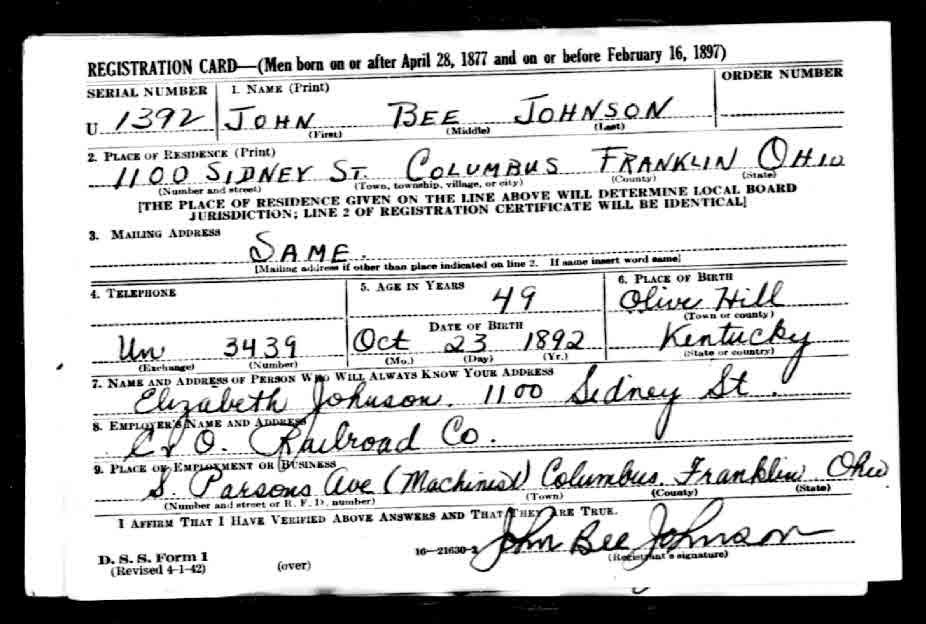 REGISTRATION CARD—(Men born on or after April 28, 1877 and on or before February 16, 1897)
SERIAL NUMBER 1. NAME (Print) ORDER NUMBER
U 1392 JOHN BEE JOHNSON
(First) (Middle) (Last)
2. PLACE OF RESIDENCE (Print)
1100 SIDNEY ST. COLUMBUS FRANKLIN OHIO
(Number and street) (Town, township, village, or city) (County) (State)
[THE PLACE OF RESIDENCE GIVEN ON THE LINE ABOVE WILL DETERMINE LOCAL BOARD
JURISDICTION; LINE 2 OF REGISTRATION CERTIFICATE WILL BE IDENTICAL]
3. MAILING ADDRESS
SAME.
[Mailing address if other than place indicated on line 2. If same insert word same]
4. TELEPHONE 5. AGE IN YEARS 6. PLACE OF BIRTH
49 Olive Hill
(Town or county)
DATE OF BIRTH
Un 3439 Oct 23 1892 Kentucky
(Exchange) (Number) (Mo.) (Day) (Yr.) (State or country)
7. NAME AND ADDRESS OF PERSON WHO WILL ALWAYS KNOW YOUR ADDRESS
Elizabeth Johnson. 1100 Sidney St.
8. EMPLOYER'S NAME AND ADDRESS
C & O. Railroad Co.
9. PLACE OF EMPLOYMENT OR BUSINESS
S. Parsons Ave (Machinist) Columbus. Franklin Ohio
(Number and street or R. F. D. number) (Town) (County) (State)
I AFFIRM THAT I HAVE VERIFIED ABOVE ANSWERS AND THAT THEY ARE TRUE.
John Bee Johnson
D. S. S. Form 1 16—21630-2 (Registrant's signature)
(Revised 4-1-42) (over)